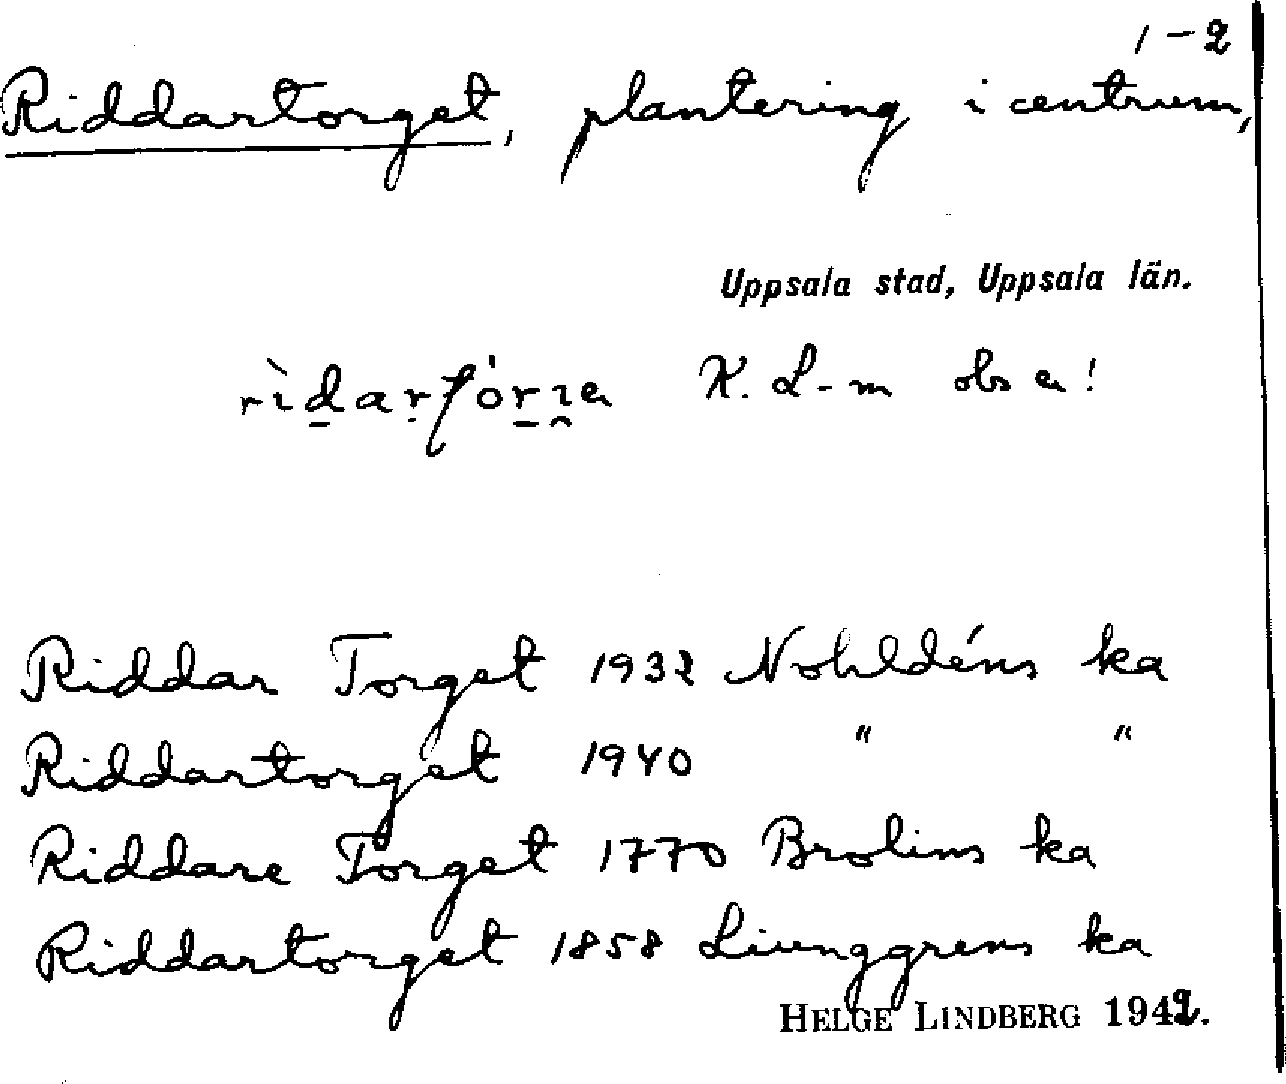 1-2
Riddartorget, plantering i centrum,
Uppsala stad, Uppsala län.
K. L-m obs a!
Riddar Torget 1932 Nohldéns ka
Riddartorget 1940 " "
Riddare Torget 1770 Brolins ka
Riddartorget 1858 Liunggrens ka
HELGE LINDBERG 1942.